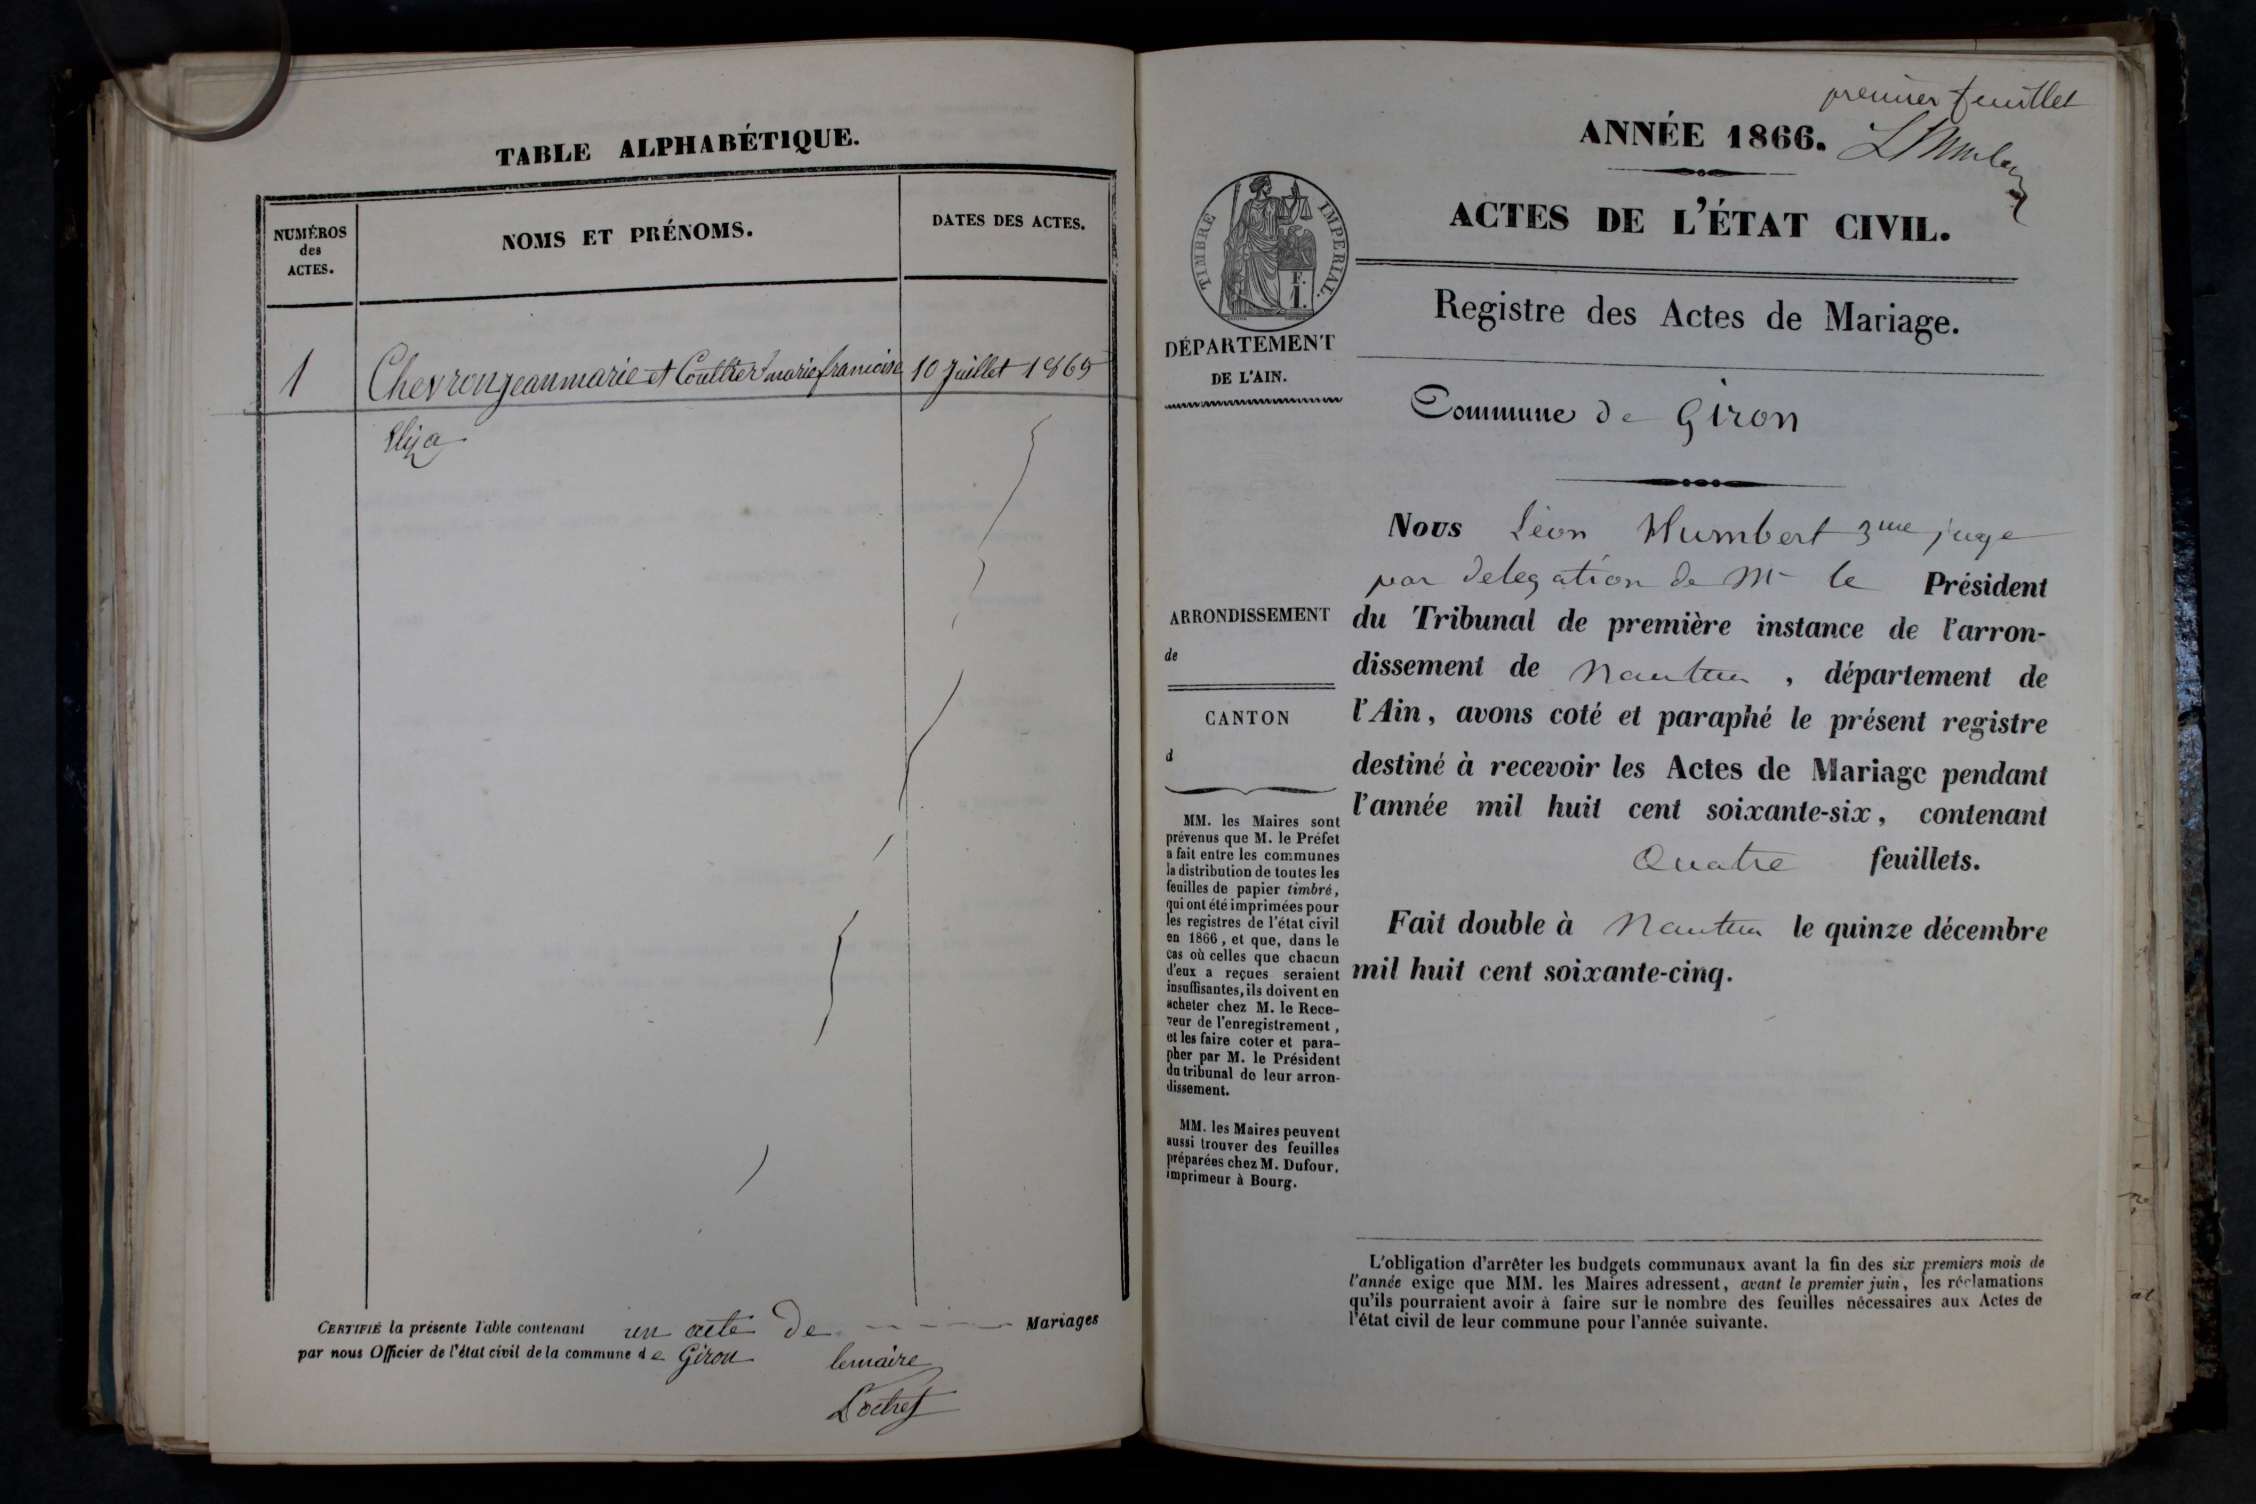 TABLE ALPHABÉTIQUE.
NUMÉROS
des
ACTES.
NOMS ET PRÉNOMS.
DATES DES ACTES.
1 Chevron jean marie et Coutier marie francoise 10 Juillet 1865
Eliza
CERTIFIÉ la présente Table contenant un acte de Mariages
par nous Officier de l'état civil de la commune de Giron
le maire
premier feuillet
ANNÉE 1866.
ACTES DE L'ÉTAT CIVIL.
TIMBRE IMPERIAL.
F.
1.
Registre des Actes de Mariage.
DÉPARTEMENT
DE L'AIN.
Commune de Giron
Nous Léon Humbert 3me juge
par delegation de Mr le Président
du Tribunal de première instance de l'arron-
dissement de Nantua, département de
l'Ain, avons coté et paraphé le présent registre
destiné à recevoir les Actes de Mariage pendant
l'année mil huit cent soixante-six, contenant
Quatre feuillets.
Fait double à Nantua le quinze décembre
mil huit cent soixante-cinq.
ARRONDISSEMENT
de
CANTON
d
MM. les Maires sont
prévenus que M. le Préfet
a fait entre les communes
la distribution de toutes les
feuilles de papier timbré,
qui ont été imprimées pour
les registres de l'état civil
en 1866, et que, dans le
cas où celles que chacun
d'eux a reçues seraient
insuffisantes, ils doivent en
acheter chez M. le Rece-
veur de l'enregistrement,
et les faire coter et para-
pher par M. le Président
du tribunal de leur arron-
dissement.
MM. les Maires peuvent
aussi trouver des feuilles
préparées chez M. Dufour,
imprimeur à Bourg.
L'obligation d'arrêter les budgets communaux avant la fin des six premiers mois de
l'année exige que MM. les Maires adressent, avant le premier juin, les réclamations
qu'ils pourraient avoir à faire sur le nombre des feuilles nécessaires aux Actes de
l'état civil de leur commune pour l'année suivante.